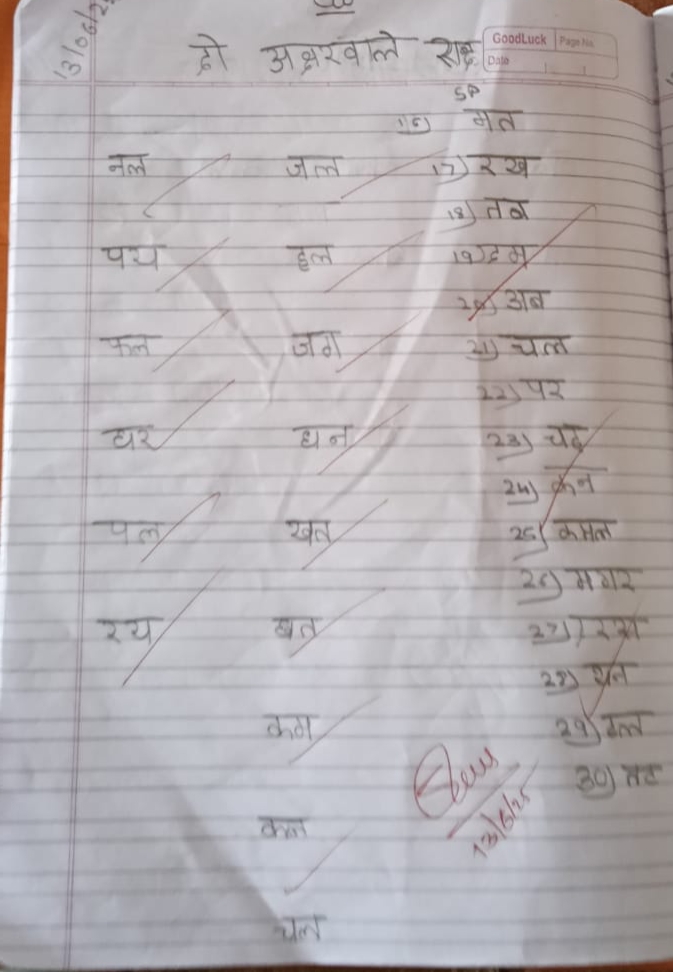 13/06/25
दो अक्षरवाले शब्द
GoodLuck Page No.
Date
नल
पय
फल
घर
पल
रय
जल
हल
जग
धन
खत
बत
कम
कन
चल
मत
17) रख
18) तब
19) हम
20) अब
21) चल
22) पर
23) चढ
24) कन
25) कमल
26) मगर
27)
28)
29)
30)
13/6/25